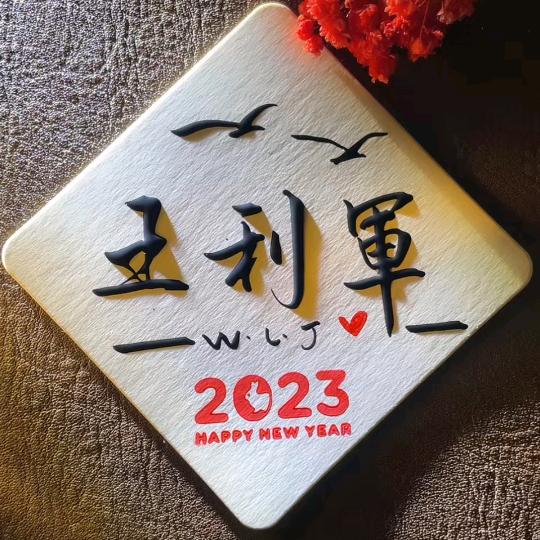 王利軍
W.L.J
2023
HAPPY NEW YEAR